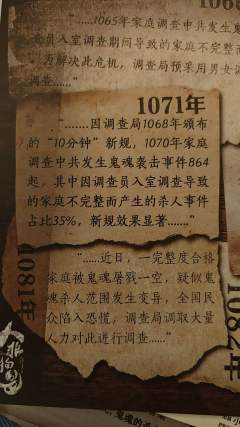 1065
"......1065年家庭调查中共发生鬼
员入室调查期间导致的家庭不完整而
为解决此危机，调查局预采用男女调
查......"
1071年
"......因调查局1068年颁布
的"10分钟"新规，1070年家庭
调查中共发生鬼魂袭击事件864
起，其中因调查员入室调查导致
的家庭不完整而产生的杀人事件
占比35%，新规效果显著......"
1081年
"......近日，一完整度合格
家庭被鬼魂屠戮一空，疑似鬼
魂杀人范围发生变异，全国民
众陷入恐慌，调查局调取大量
人力对此进行调查......"
1082年